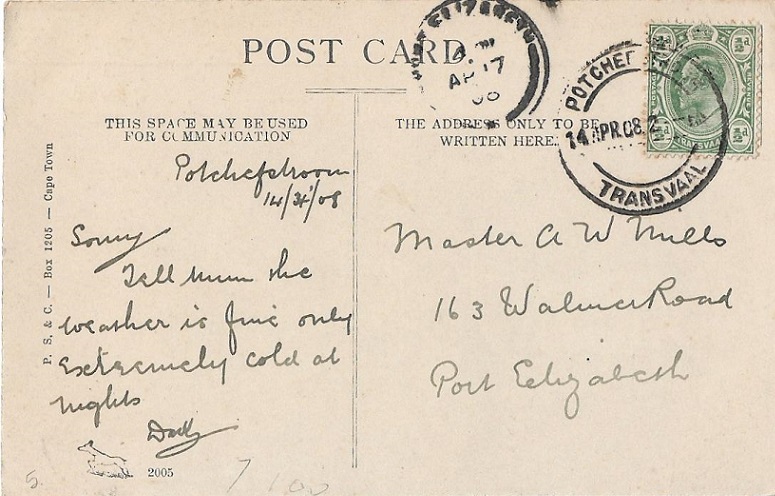 POST CARD
PORT ELIZABETH
AP 17
08
POTCHEF
14 APR.08.2
TRANSVAAL
THIS SPACE MAY BE USED
FOR COMMUNICATION
THE ADDRESS ONLY TO BE
WRITTEN HERE.
P. S. & C. — Box 1205 — Cape Town
Potchefstroom
14/4/08
Sonny
Tell Mum the
weather is fine only
extremely cold at
nights
Daddy
2005
5.
7 100
Master A W Mills
163 Walmer Road
Port Elizabeth